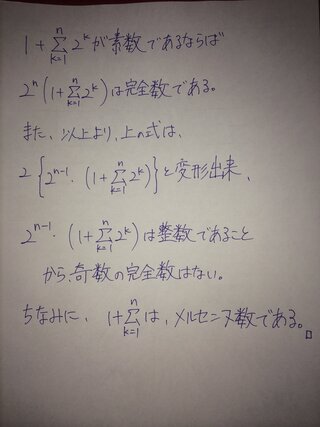 1 + Σ_{k=1}^{n} 2^k が素数であるならば
2^n (1 + Σ_{k=1}^{n} 2^k) は完全数である。
また、以上より、上の式は、
2 { 2^{n-1} · (1 + Σ_{k=1}^{n} 2^k) } と変形出来、
2^{n-1} · (1 + Σ_{k=1}^{n} 2^k) は整数であること
から、奇数の完全数はない。
ちなみに、 1 + Σ_{k=1}^{n} は、メルセンヌ数である。□